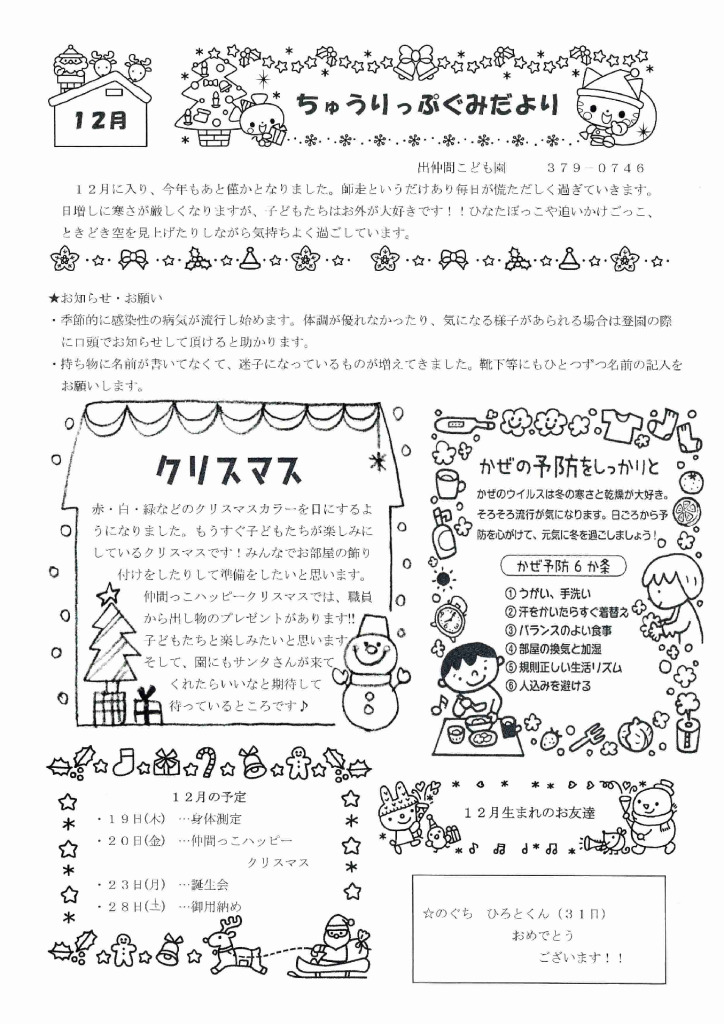 12月
ちゅうりっぷぐみだより
出仲間こども園 379-0746
12月に入り、今年もあと僅かとなりました。師走というだけあり毎日が慌ただしく過ぎていきます。
日増しに寒さが厳しくなりますが、子どもたちはお外が大好きです！！ひなたぼっこや追いかけごっこ、
ときどき空を見上げたりしながら気持ちよく過ごしています。
★お知らせ・お願い
・季節的に感染性の病気が流行し始めます。体調が優れなかったり、気になる様子があられる場合は登園の際
に口頭でお知らせして頂けると助かります。
・持ち物に名前が書いてなくて、迷子になっているものが増えてきました。靴下等にもひとつずつ名前の記入を
お願いします。
クリスマス
赤・白・緑などのクリスマスカラーを目にするよ
うになりました。もうすぐ子どもたちが楽しみに
しているクリスマスです！みんなでお部屋の飾り
付けをしたりして準備をしたいと思います。
仲間っこハッピークリスマスでは、職員
から出し物のプレゼントがあります!!
子どもたちと楽しみたいと思います。
そして、園にもサンタさんが来て
くれたらいいなと期待して
待っているところです♪
かぜの予防をしっかりと
かぜのウイルスは冬の寒さと乾燥が大好き。
そろそろ流行が気になります。日ごろから予
防を心がけて、元気に冬を過ごしましょう！
かぜ予防6か条
①うがい、手洗い
②汗をかいたらすぐ着替え
③バランスのよい食事
④部屋の換気と加湿
⑤規則正しい生活リズム
⑥人込みを避ける
12月の予定
・19日(木) …身体測定
・20日(金) …仲間っこハッピー
クリスマス
・23日(月) …誕生会
・28日(土) …御用納め
12月生まれのお友達
☆のぐち ひろとくん（31日）
おめでとう
ございます！！